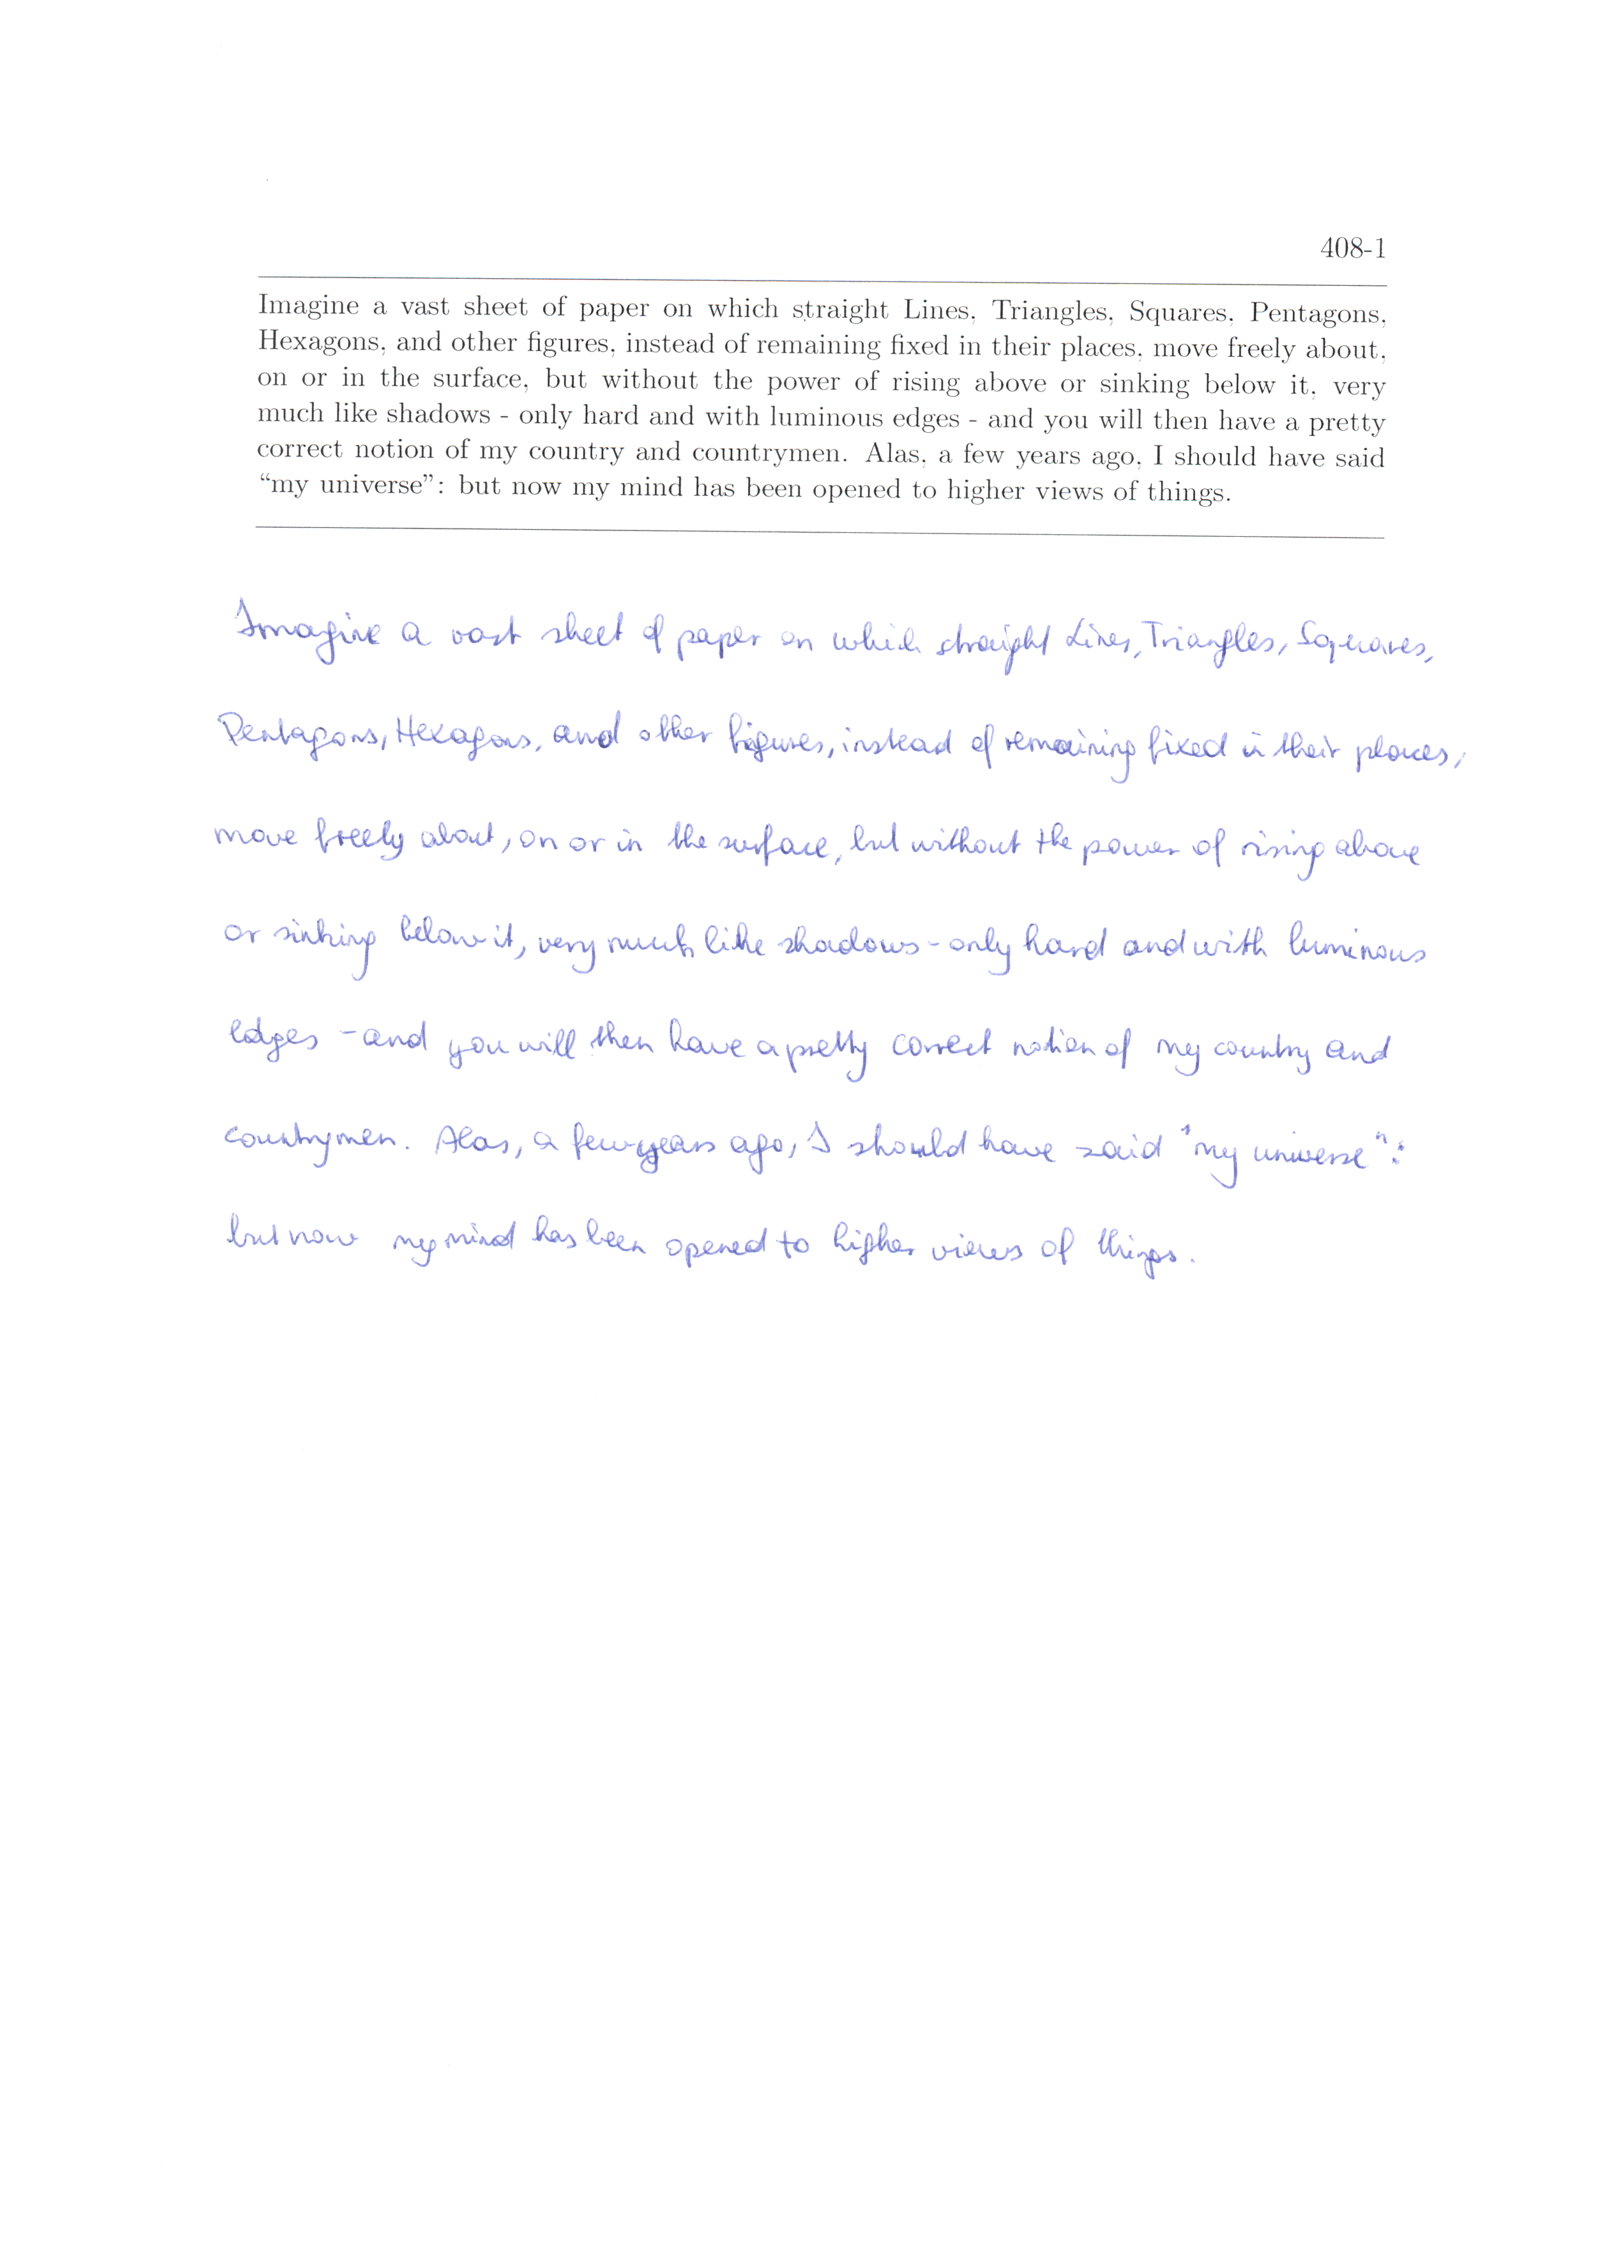 408-1
Imagine a vast sheet of paper on which straight Lines, Triangles, Squares, Pentagons,
Hexagons, and other figures, instead of remaining fixed in their places, move freely about,
on or in the surface, but without the power of rising above or sinking below it, very
much like shadows - only hard and with luminous edges - and you will then have a pretty
correct notion of my country and countrymen. Alas, a few years ago, I should have said
“my universe”: but now my mind has been opened to higher views of things.
Imagine a vast sheet of paper on which straight Lines, Triangles, Squares,
Pentagons, Hexagons, and other figures, instead of remaining fixed in their places,
move freely about, on or in the surface, but without the power of rising above
or sinking below it, very much like shadows - only hard and with luminous
edges - and you will then have a pretty correct notion of my country and
countrymen. Alas, a few years ago, I should have said "my universe":
but now my mind has been opened to higher views of things.